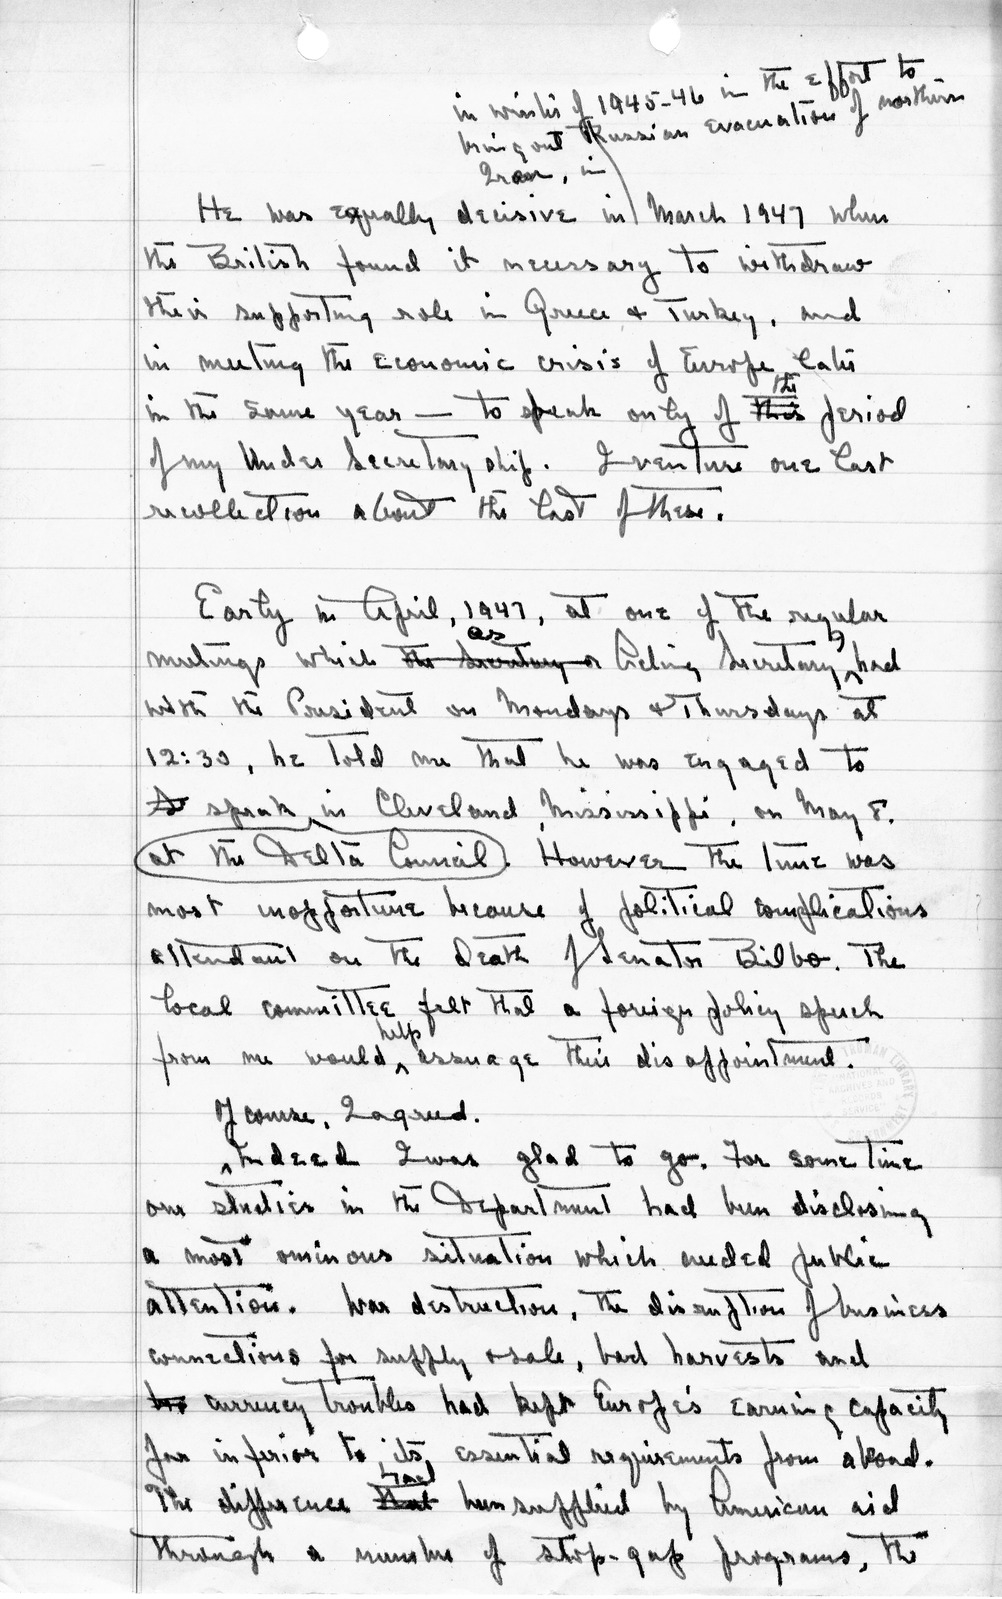 in winter of 1945-46 in the effort to
bring out Russian evacuation of northern
Iran, in
He was equally decisive in March 1947 when
the British found it necessary to withdraw
their supporting role in Greece & Turkey, and
in meeting the economic crisis of Europe late
the
in the same year — to speak only of this period
of my Under Secretaryship. I venture one last
recollection about the last of these.
Early in April, 1947, at one of the regular
as
meetings which the Secretary or Acting Secretary, I, had
with the President on Mondays & Thursdays at
12:30, he told me that he was engaged to
speak in Cleveland, Mississippi, on May 8.
at the Delta Council. However the time was
most inopportune because of political complications
attendant on the death of Senator Bilbo. The
local committee felt that a foreign policy speech
help
from me would assuage their disappointment.
Of course, I agreed.
Indeed I was glad to go. For some time
our studies in the Department had been disclosing
a most ominous situation which needed public
attention. War destruction, the disruption of business
connections for supply & sale, bad harvests and
currency troubles had kept Europe's earning capacity
far inferior to its essential requirements from abroad.
had
The difference that been supplied by American aid
through a number of stop-gap programs, the
TRUMAN LIBRARY
NATIONAL
ARCHIVES AND
RECORDS
SERVICE